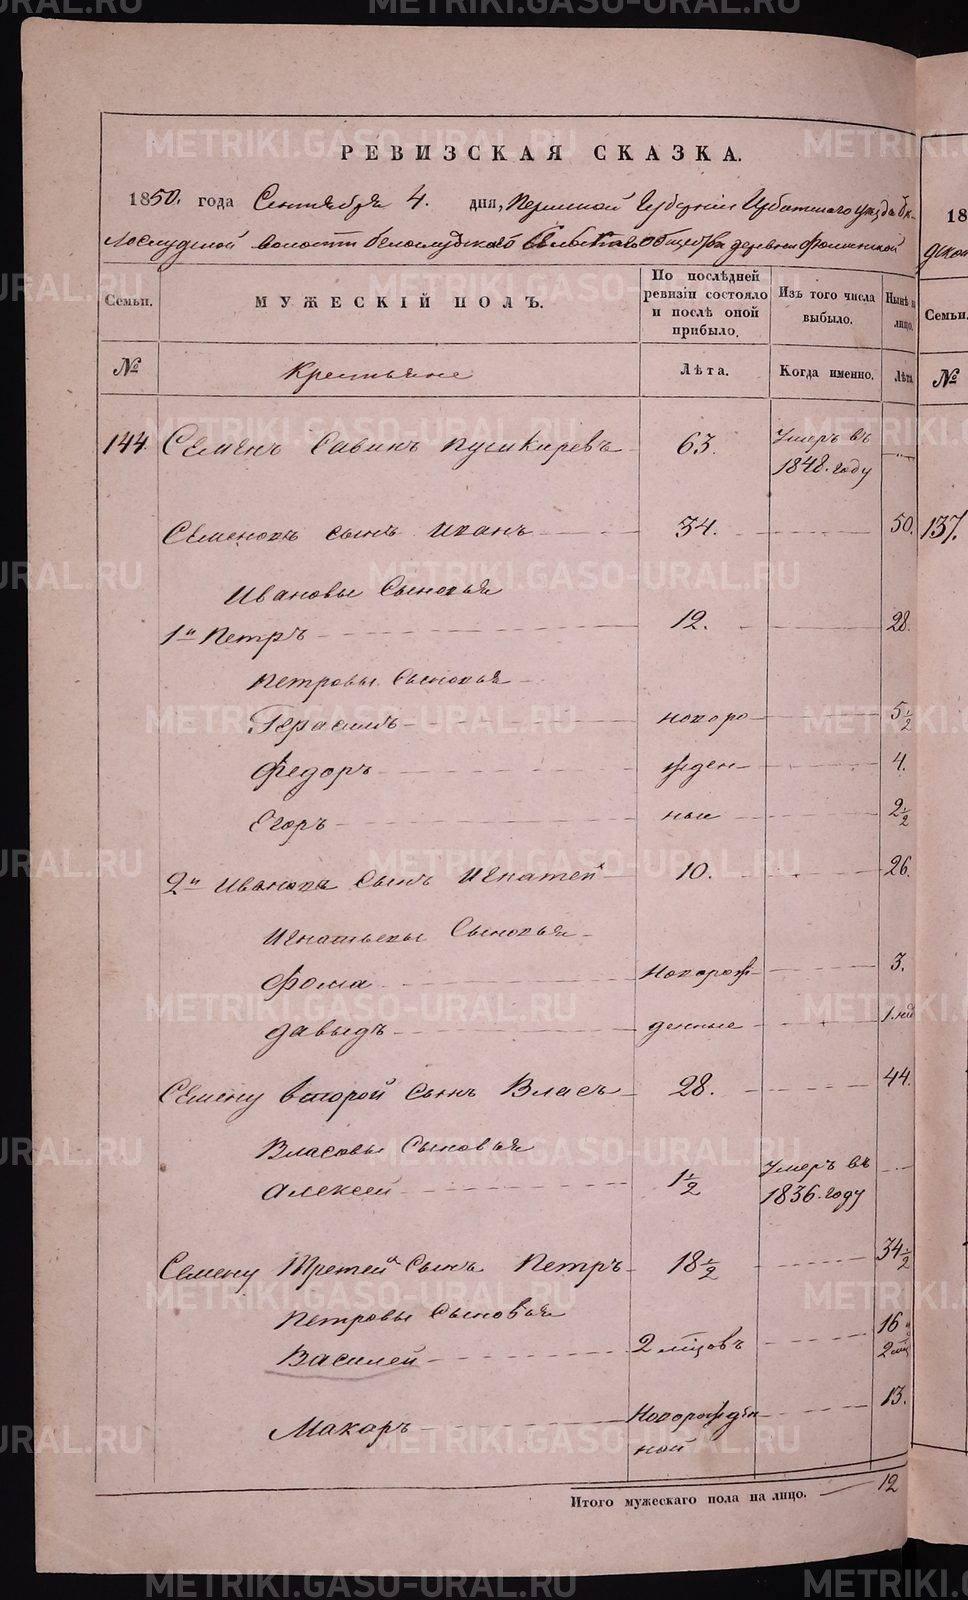 РЕВИЗСКАЯ СКАЗКА.
1850. года Сентября 4. дня, Пермской Губернии Ирбитскаго уезда Бе-
лослудской волости белослудскаго Сельскаго Общества деревни Фоминской
Семьи. МУЖЕСКІЙ ПОЛЪ. По послѣдней ревизіи состояло и послѣ оной прибыло. Изъ того числа выбыло. Нынѣ на лицо.
№ Крестьяне Лѣта. Когда именно. Лѣта
144. Семенъ Савинъ Пушкаревъ 63. Умеръ въ
1848. году
Семеновъ сынъ Иванъ 34. 50.
Ивановы Сыновья
1й Петръ 12. 28.
Петровы Сыновья
Герасимъ новоро 5 1/2
Федоръ жден 4.
Егоръ ные 2 1/2
2й Ивановъ Сынъ Игнатей 10. 26.
Игнатьевы Сыновья
Фома Новорож 3.
Давыдъ денные 1. нед
Семену второй сынъ Власъ 28. 44.
Власовы Сыновья
Алексей 1 1/2 Умеръ въ
1836. году
Семену Третей Сынъ Петръ 18 1/2 34 1/2
Петровы Сыновья
Василей 2 мцовъ 16 и
2 мц
Макаръ Новорожден 13.
ной
Итого мужескаго пола на лицо. 12
18
дской
Семьи.
№
137.
METRIKI.GASO-URAL.RU